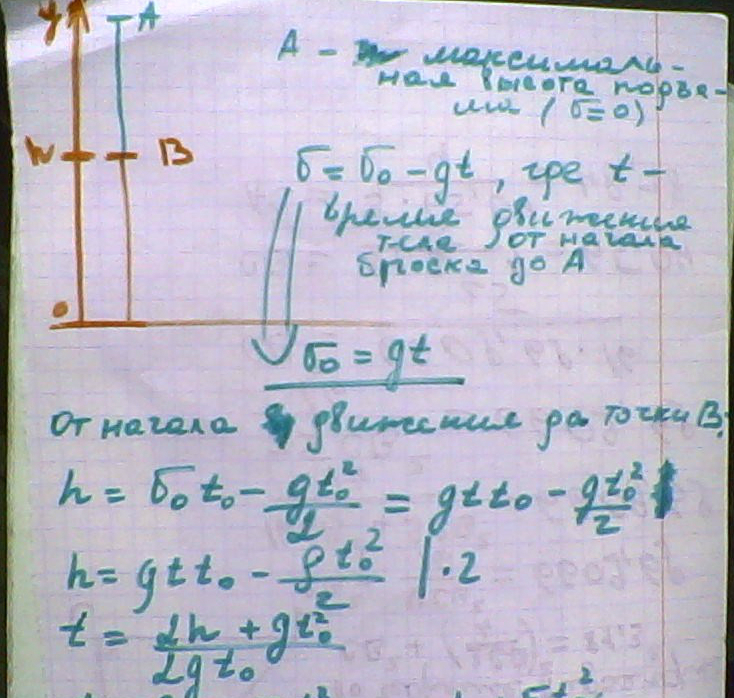 y
A
A - максималь-
ная высота подъё-
ма (v=0)
h
B
v = v₀ - gt, где t -
время движения
тела от начала
броска до A
0
v₀ = gt
от начала движения до точки B:
h = v₀t₀ - gt₀²/2 = gtt₀ - gt₀²/2
h = gtt₀ - gt₀²/2 |·2
t = (2h + gt₀²)/(2gt₀)